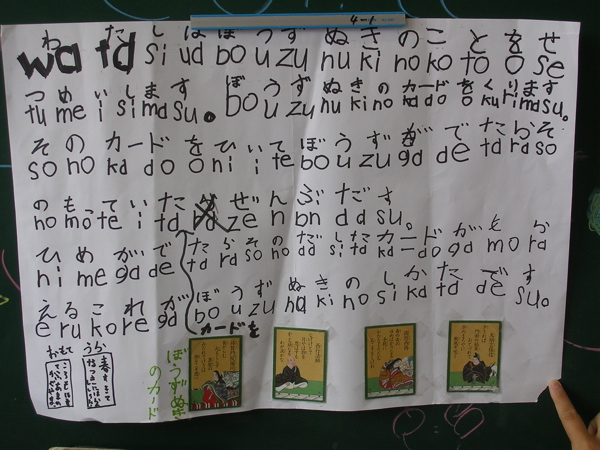 4-1
わ たし は ぼうず ぬきのことをせ
wa ta si ud bo u zu nu ki no ko to o se
つめいします ぼうず ぬきのカードをくります
tu me i si ma su。 bo u zu nu ki no ka do o ku ri ma su。
そのカードをひいてぼうずがでたらそ
so no ka do o ni i te bo u zu ga de ta ra so
のもっていた ぜんぶだす
no mo っ te i ta ze n bn da su。
ひめがで たらそのだしたカードがもら
ni me ga de ta ra so no da si ta ka do ga mo ra
えるこれが ぼうず ぬきのしかたです
e ru ko re ga bo u zu na ki no si ka ta de su。
カードを
おもて うら
ぼうず
のカード